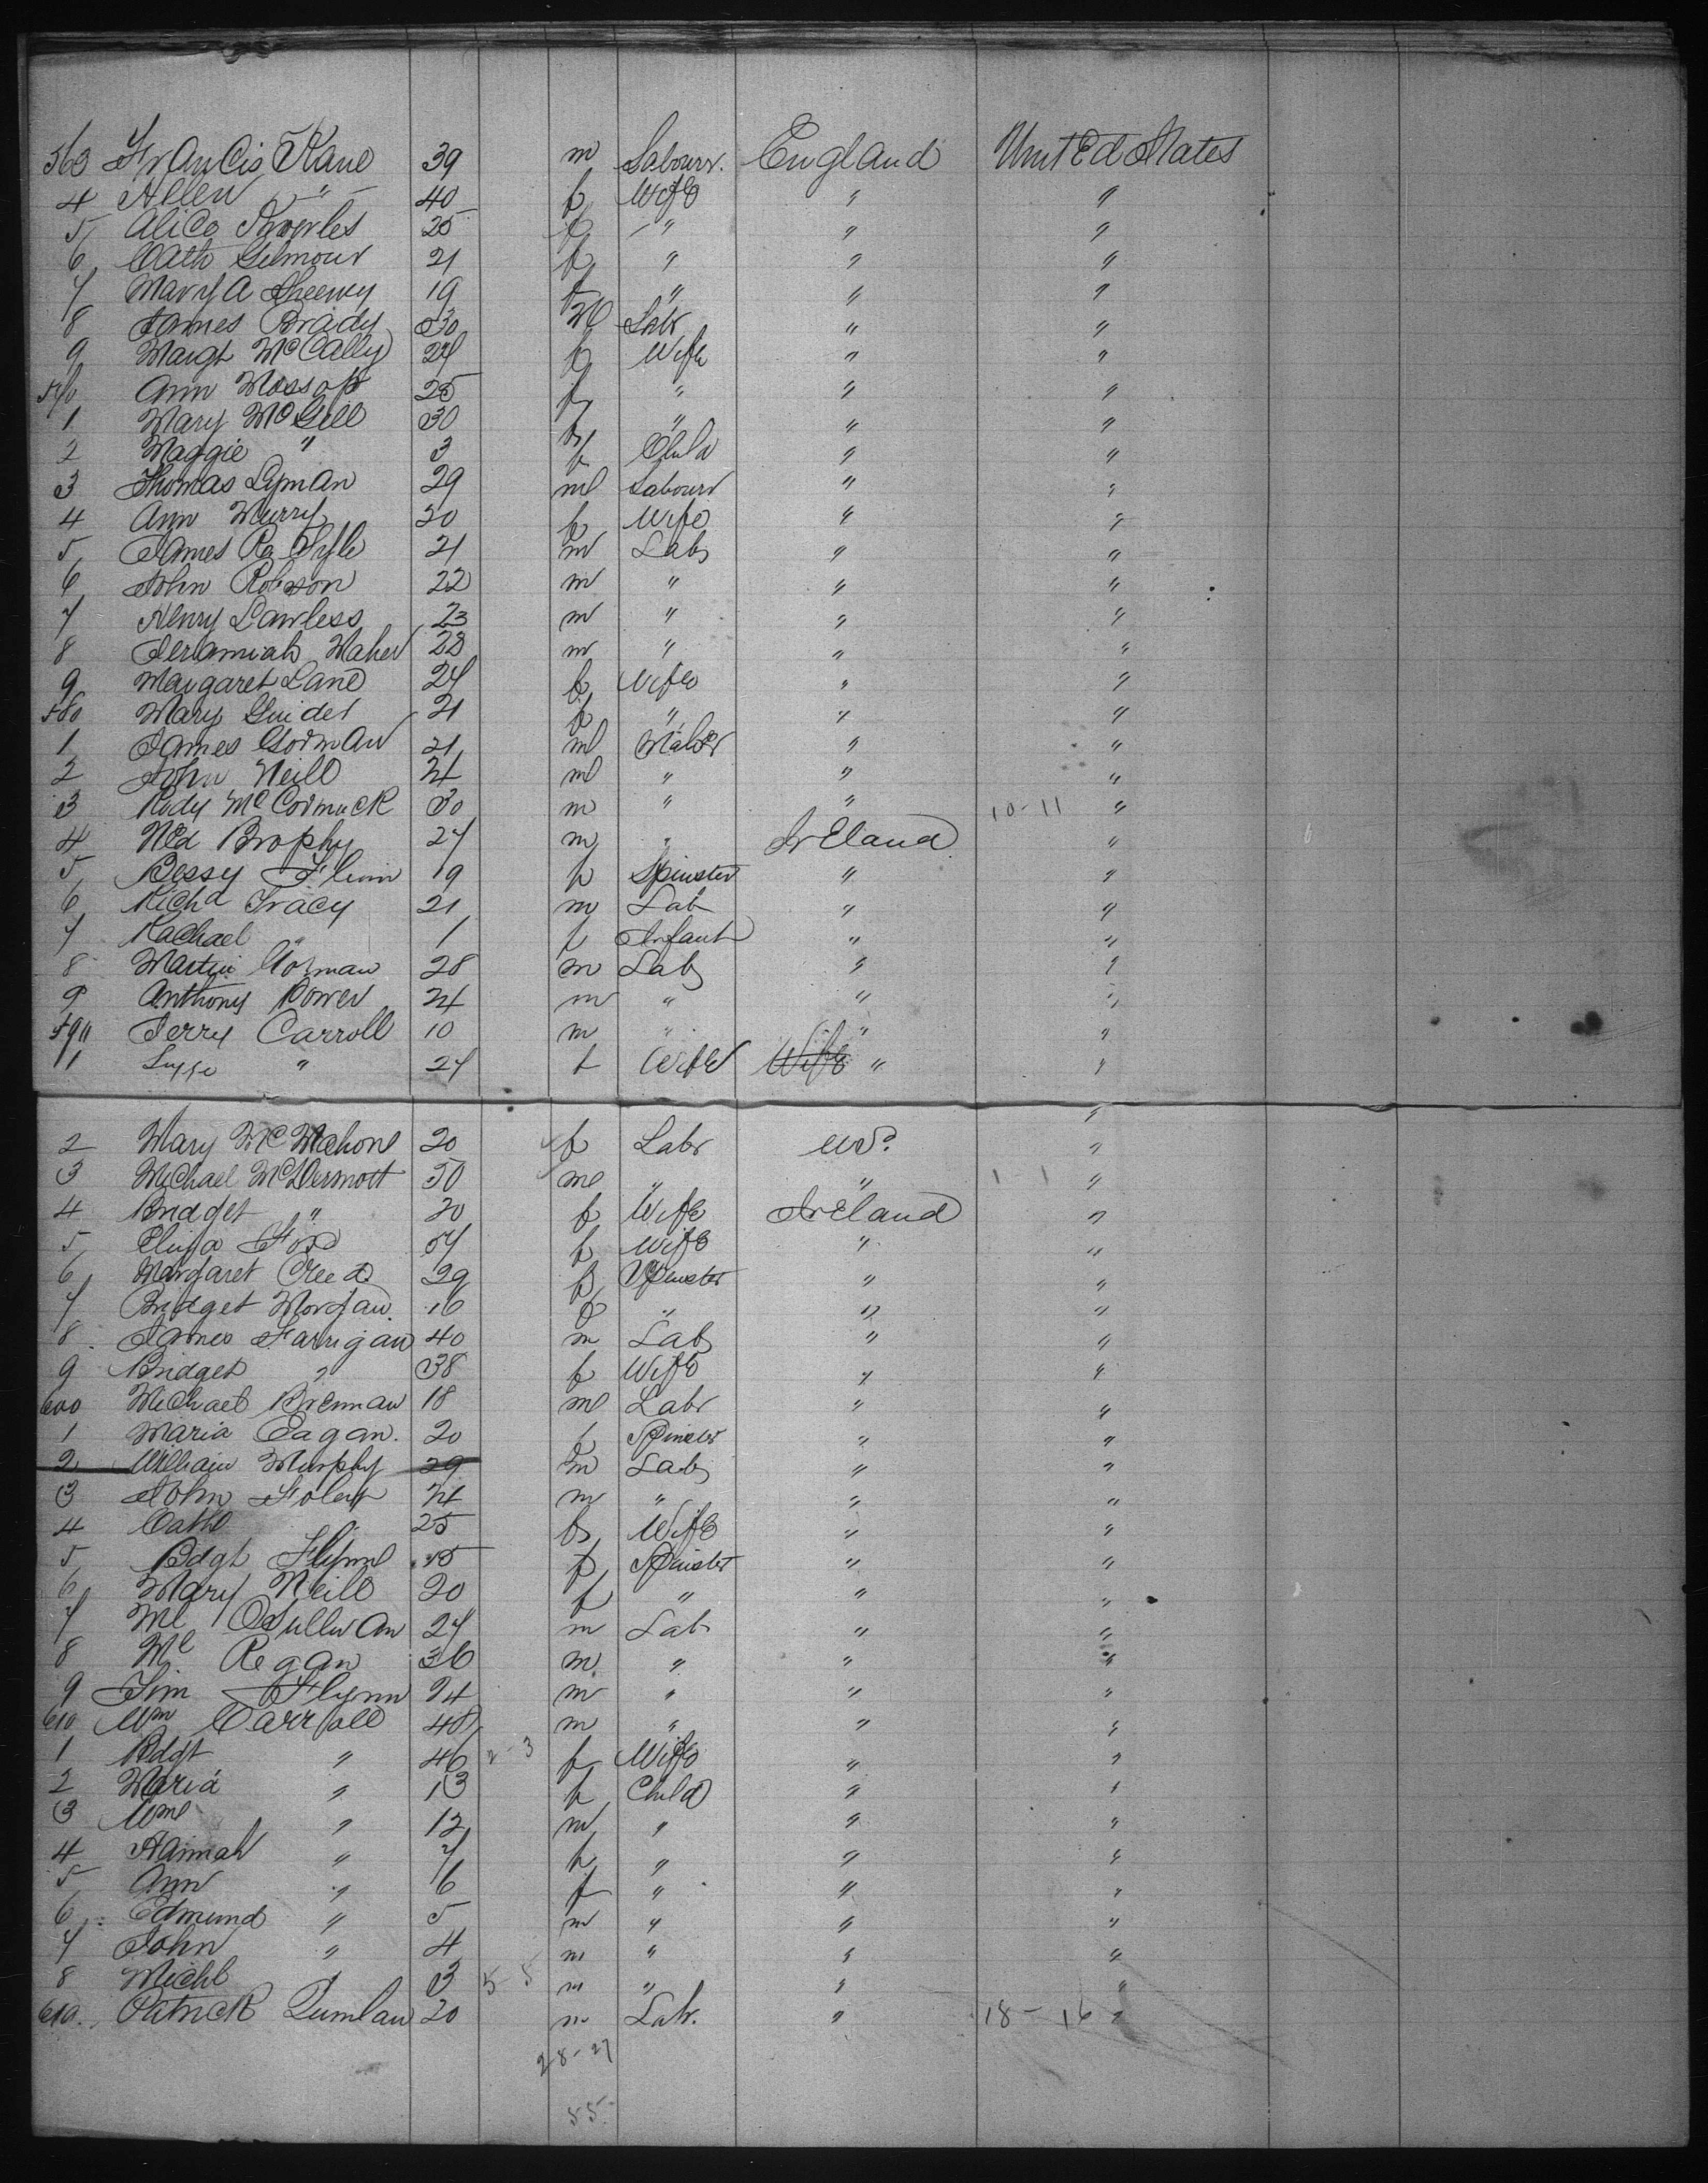 563 Francis Kane 39 m Labourr. England United States
4 Allen " 40 f Wife " "
5 Alice 25 f " " "
6 Cath Gilmour 21 f " " "
7 Mary A Sheeny 19 f " " "
8 James Brady 30 M Labr " "
9 Margt McCally 24 f Wife " "
570 Ann Mossop 25 f " " "
1 Mary McGill 30 f " " "
2 Maggie " 3 f Child " "
3 Thomas Lyman 29 m Labourr " "
4 Ann Murry 20 f Wife " "
5 James 21 m Labr " "
6 John Robson 22 m " " "
7 Henry Lawless 23 m " " "
8 Jeramiah Maher 23 m " " "
9 Margaret Lane 24 f Wife " "
580 Mary 21 f " " "
1 James Gorman 21 m " "
2 John Neill 24 m " " "
3 Rody McCormack 30 m " " 10-11 "
4 Ned Brophy 27 m " Ireland "
5 Bessy Flinn 19 f Spinster " "
6 Richd Tracy 21 m Lab " "
7 Rachael " 1 f Infant " "
8 Martin Gorman 28 m Labr " "
9 Anthony Power 24 m " " "
590 Jerry Carroll 10 m " " "
1 " 27 f Wife Wife " "
"
2 Mary McMahone 20 f Labr US. "
3 Michael McDermott 50 m " " 1 1 "
4 Bridget " 20 f Wife Ireland "
5 Eliza Fox 57 f Wife " "
6 Margaret Creed 29 f Spinster " "
7 Bridget Morgan 16 f " " "
8 James Farrigan 40 m Labr " "
9 Bridget " 38 f Wife " "
600 Michael Brennan 18 m Labr " "
1 Maria Eagan. 20 f Spinster " "
2 William Murphy 29 m Labr " "
3 John Foley 24 m " " "
4 Cath 25 f Wife " "
5 Bdgt Flynn f Spinster " "
6 Mary Neill 20 f " " "
7 Ml OSullivan 27 m Labr " "
8 Ml Regan 36 m " " "
9 Jim Flynn 24 m " " "
610 Wm Carroll 48 m " " "
1 Bdgt " 46 2-3 f Wife " "
2 Maria " 13 f Child " "
3 Wm " 12 m " " "
4 Hannah " 7 f " " "
5 Ann " 6 f " " "
6 Edmund " 5 m " " "
7 John " 4 m " " "
8 Michl " 3 5-5 m " " "
619. Patrick Quinlan 20 m Labr. " 18-16 "
28-27
55